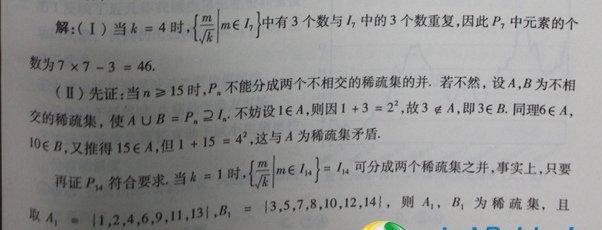 解:(Ⅰ)当 k = 4 时,{m/√k | m∈I₇}中有 3 个数与 I₇ 中的 3 个数重复,因此 P₇ 中元素的个
数为 7 × 7 − 3 = 46.
(Ⅱ)先证:当 n ⩾ 15 时,Pₙ 不能分成两个不相交的稀疏集的并. 若不然, 设 A,B 为不相
交的稀疏集, 使 A ∪ B = Pₙ ⊇ Iₙ. 不妨设 1∈A,则因 1 + 3 = 2²,故 3 ∉ A,即 3∈B. 同理6∈A,
10∈B,又推得 15∈A,但 1 + 15 = 4²,这与 A 为稀疏集矛盾.
再证 P₁₄ 符合要求. 当 k = 1 时,{m/√k | m∈I₁₄} = I₁₄ 可分成两个稀疏集之并,事实上,只要
取 A₁ = {1,2,4,6,9,11,13},B₁ = {3,5,7,8,10,12,14}, 则 A₁, B₁ 为稀疏集, 且